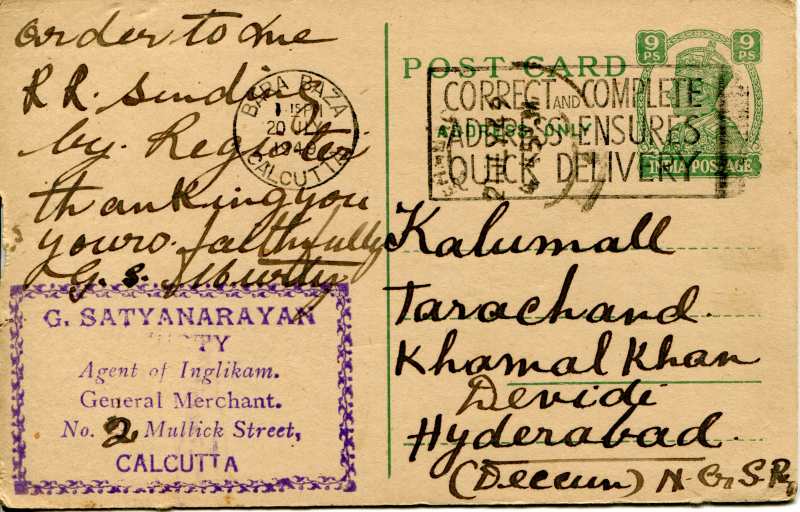 order to me
R R. sendi
by. Register
thanking you
yours. faithfully
G. S. Murty
G. SATYANARAYAN
TY
Agent of Inglikam.
General Merchant.
No. 2 Mullick Street,
CALCUTTA
BARA BAZA
20 JLY
CALCUTTA
POST CARD
ADDRESS ONLY
CORRECT AND COMPLETE
ADDRESS ENSURES
QUICK DELIVERY
9 PS 9 PS
INDIA POSTAGE
Kalumall
Tarachand.
Khamal Khan
Devidi
Hyderabad.
(Deccun) N. G. S. Ry